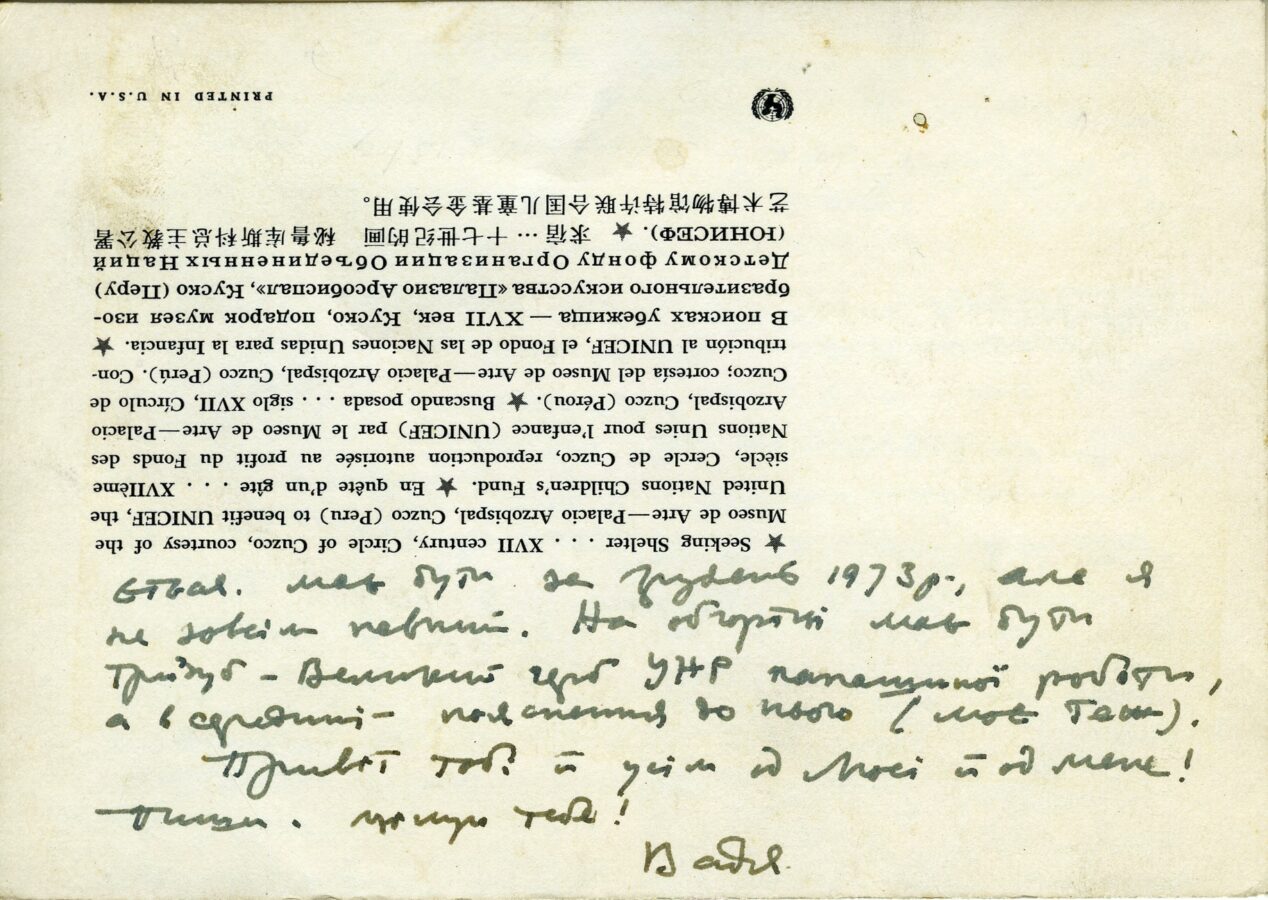 ★ Seeking Shelter . . . XVII century, Circle of Cuzco, courtesy of the
Museo de Arte—Palacio Arzobispal, Cuzco (Peru) to benefit UNICEF, the
United Nations Children's Fund. ★ En quête d'un gîte . . . XVIIème
siècle, Cercle de Cuzco, reproduction autorisée au profit du Fonds des
Nations Unies pour l'enfance (UNICEF) par le Museo de Arte—Palacio
Arzobispal, Cuzco (Pérou). ★ Buscando posada . . . siglo XVII, Círculo de
Cuzco; cortesía del Museo de Arte—Palacio Arzobispal, Cuzco (Perú). Con-
tribución al UNICEF, el Fondo de las Naciones Unidas para la Infancia. ★
В поисках убежища — XVII век, Куско, подарок музея изо-
бразительного искусства «Палазио Арсобиспал», Куско (Перу)
Детскому фонду Организации Объединенных Наций
(ЮНИСЕФ). ★ 求宿 … 十七世纪的画 秘鲁库斯科总主教公署
艺术博物馆特许联合国儿童基金会使用。
PRINTED IN U.S.A.
має бути за грудень 1973 р., але я
не зовсім певний. На обгортці має бути
Тризуб – Великий герб УНР папашиної роботи,
а в середині – пояснення до нього (моє теж).
Привіт тобі й усім од й од мене!
Пиши. Цілую тебе!
Вадя